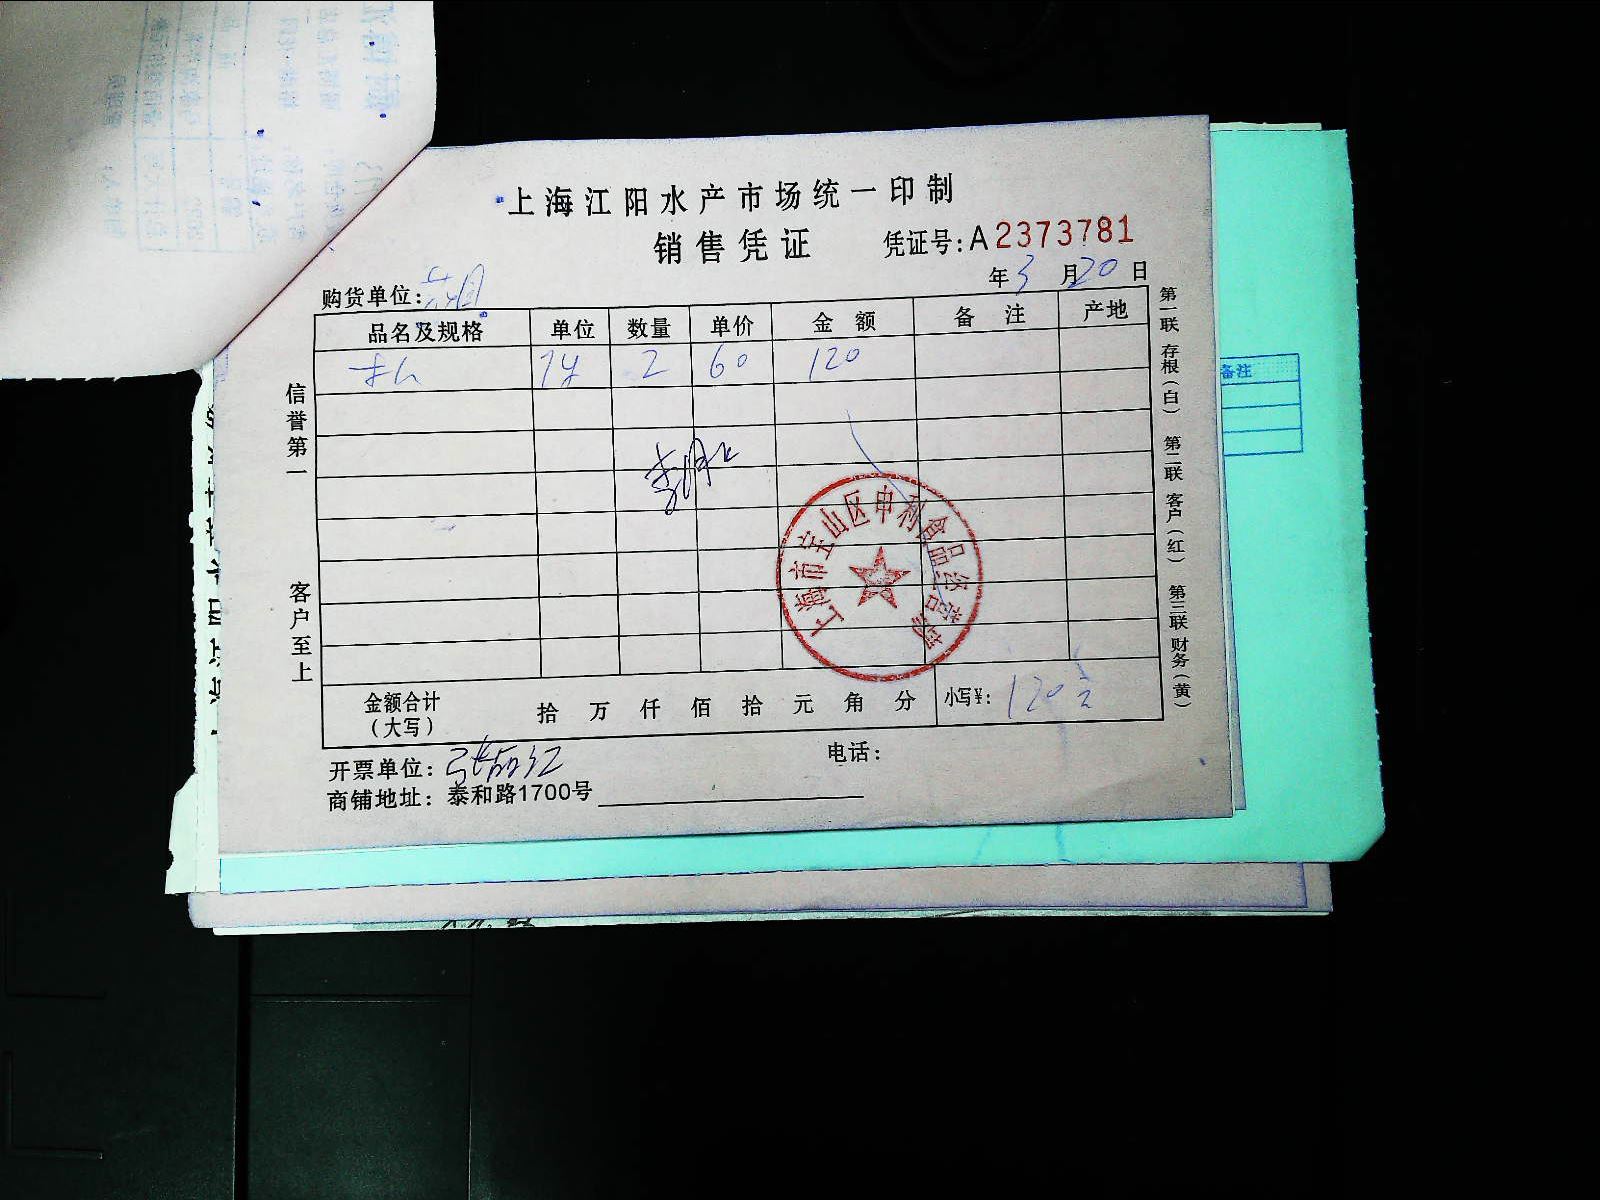 上海江阳水产市场统一印制
销售凭证 凭证号:A2373781
年3月20日
购货单位:
品名及规格 单位 数量 单价 金额 备注 产地
2 60 120
信誉第一
客户至上
上海市宝山区申利食品经营部
金额合计(大写) 拾万仟佰拾元角分 小写¥: 120元
开票单位:
电话:
商铺地址:泰和路1700号
第一联 存根(白) 第二联 客户(红) 第三联 财务(黄)
备注